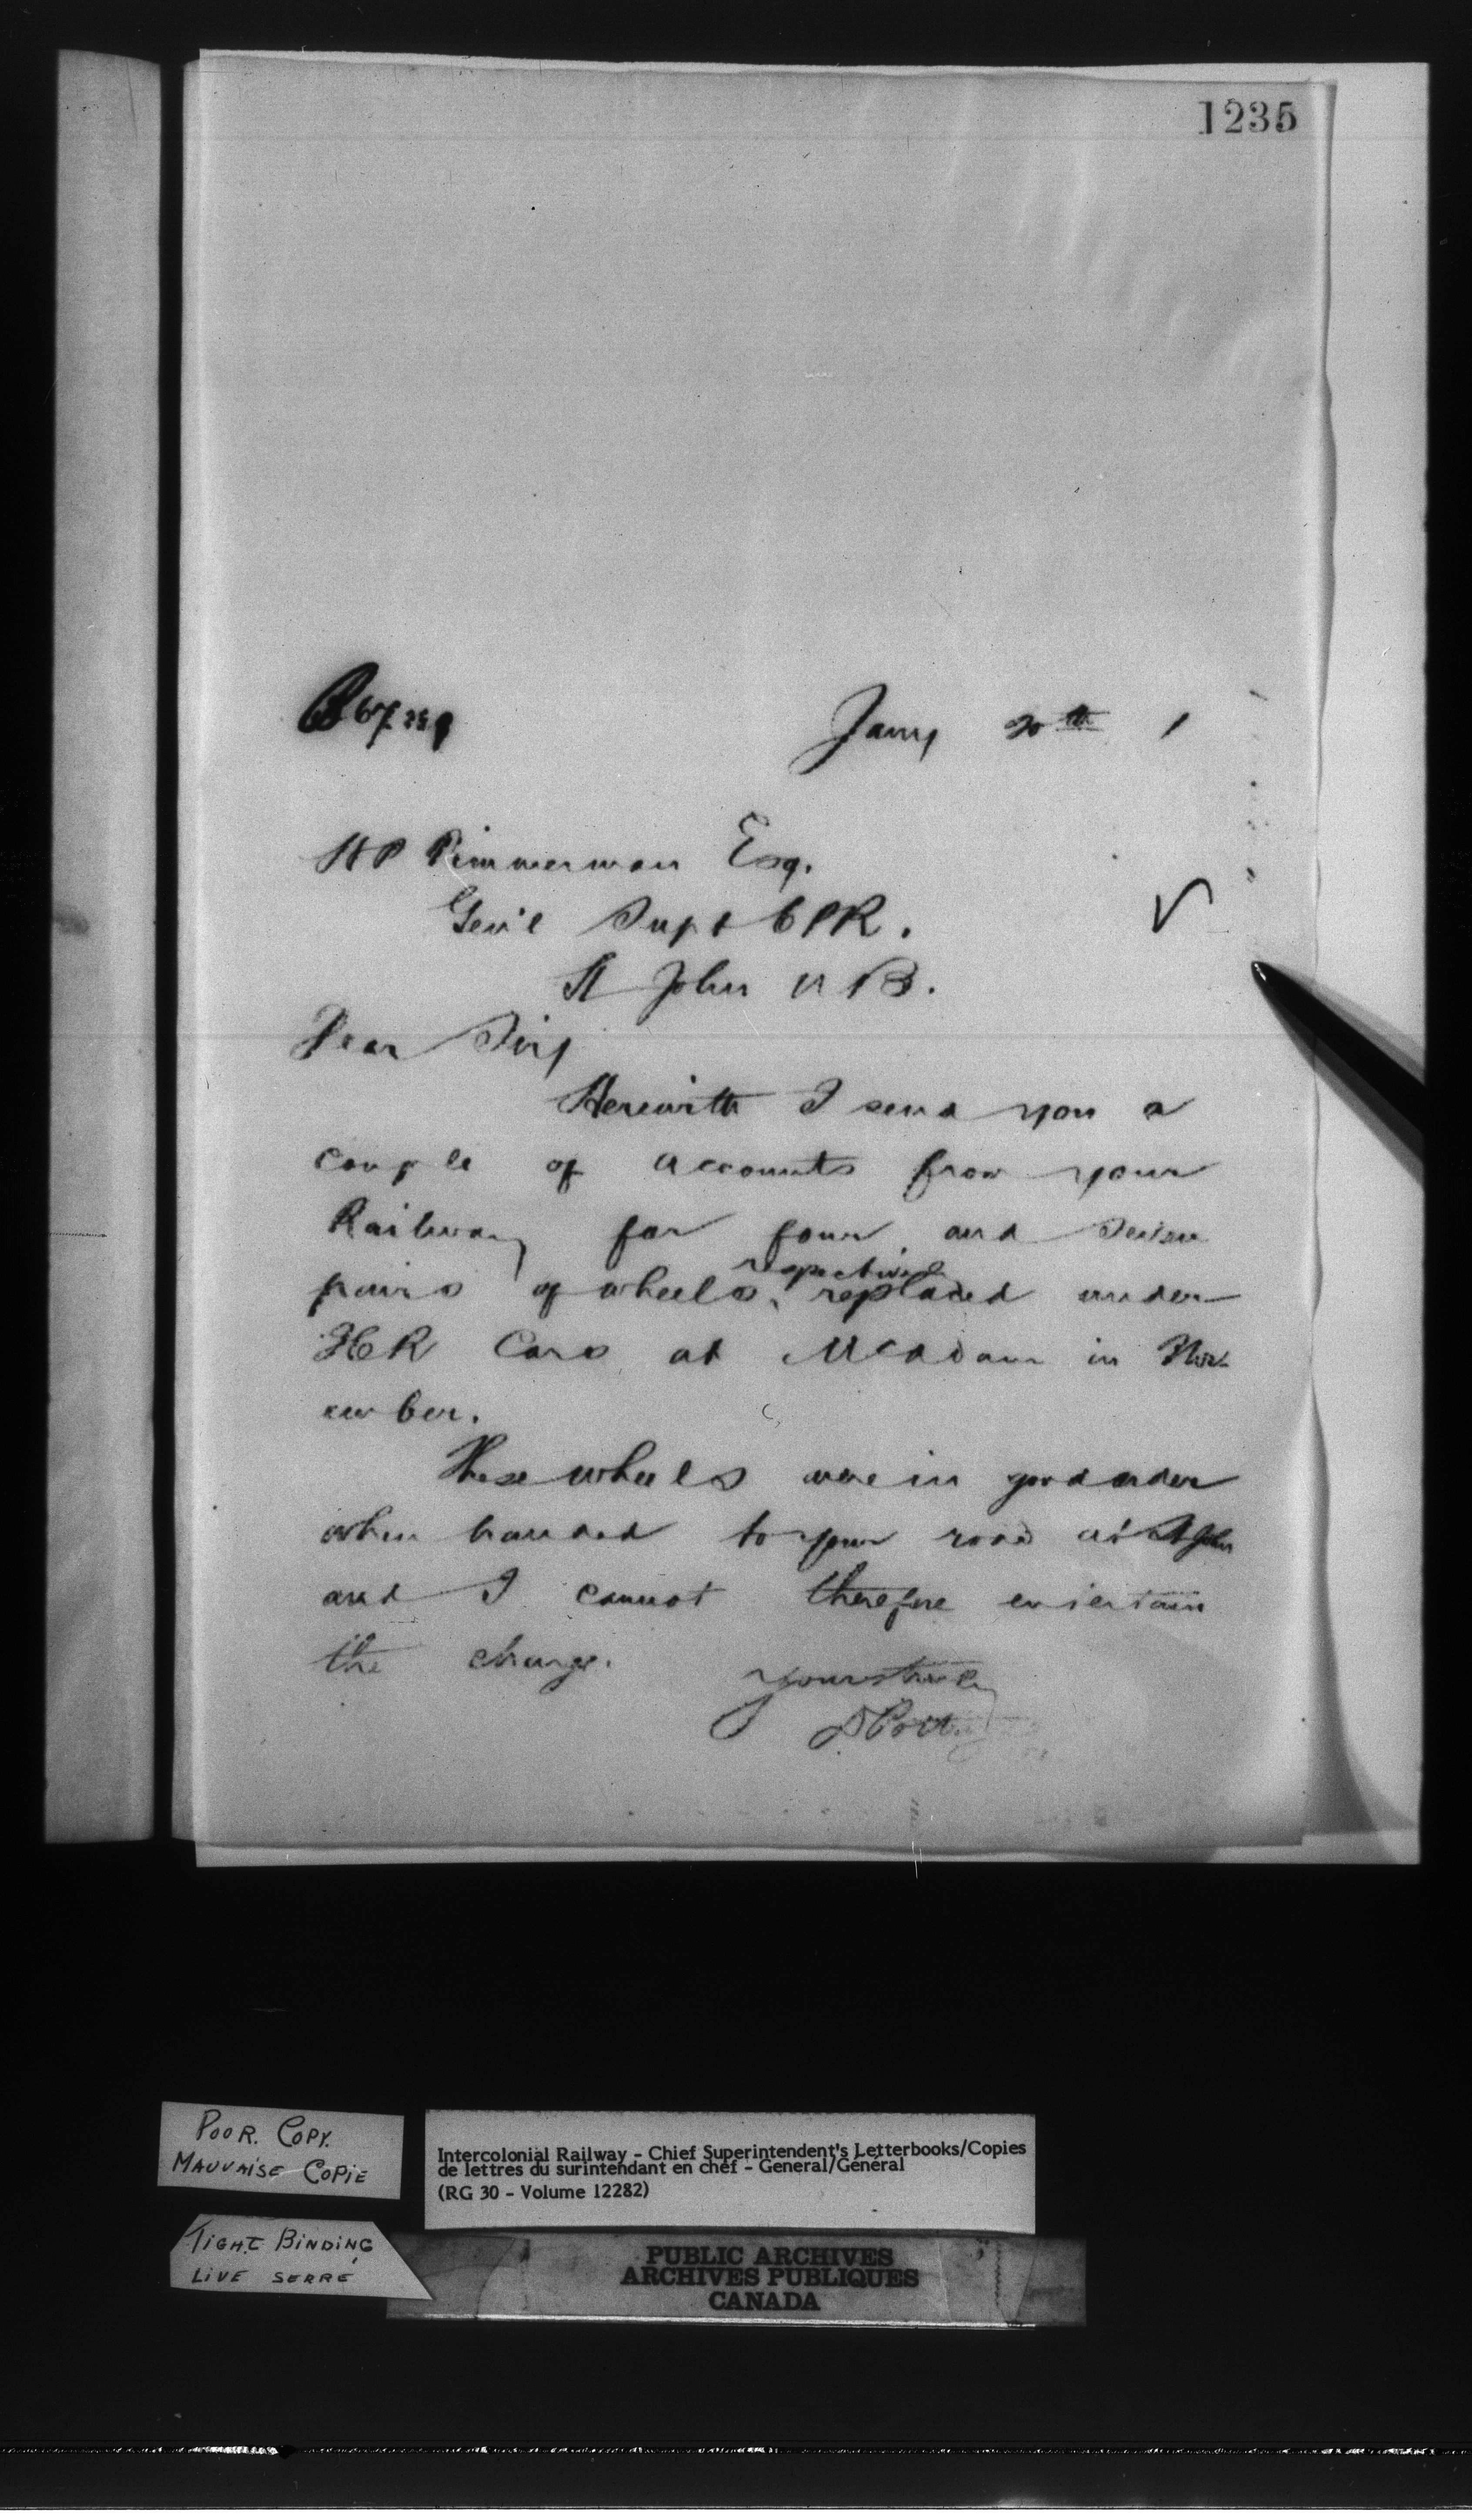 1235
Jany 20th 1
HP Timmerman Esq.
Gen'l Supt CPR.
St John N B.
Dear Sir,
Herewith I send you a
couple of accounts from your
Railway for four and seven
pairs of wheels, respectively
replaced under
ICR Cars at McAdam in Nov-
ember.
These wheels were in good order
when handed to your road at St John
and I cannot therefore entertain
the charge.
Yours truly
D Potting
POOR. COPY.
MAUVAISE COPIE
Intercolonial Railway - Chief Superintendent's Letterbooks/Copies
de lettres du surintendant en chef - General/Général
(RG 30 - Volume 12282)
TIGHT BINDING
LIVE SERRÉ
PUBLIC ARCHIVES
ARCHIVES PUBLIQUES
CANADA